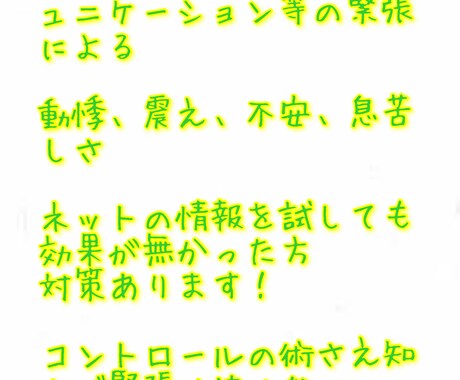 ュニケーション等の緊張
による
動悸、震え、不安、息苦
しさ
ネットの情報を試しても
効果が無かった方
対策あります！
コントロールの術さえ知